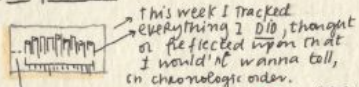 this week I tracked
everything I DID, thought
or reflected upon that
I would'nt wanna tell,
in chronologic order.